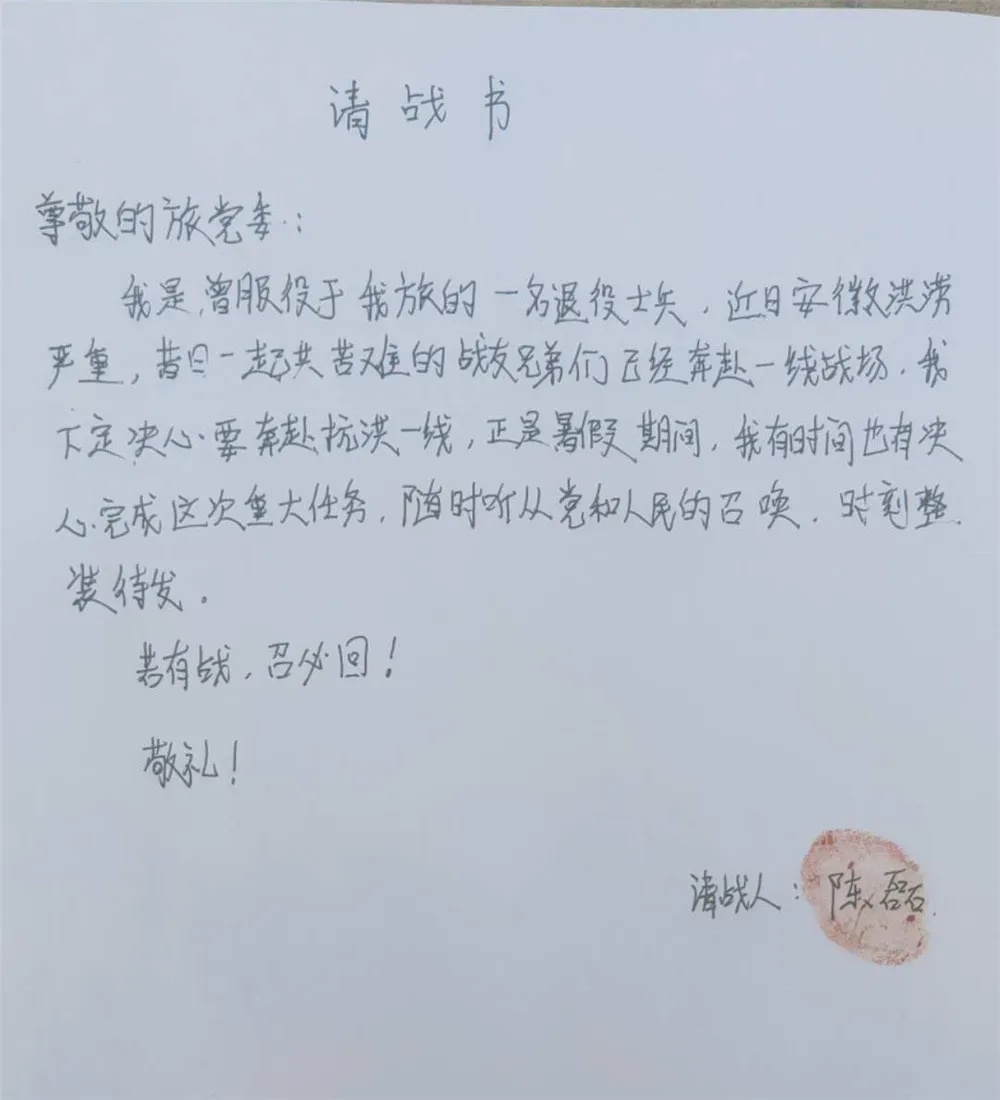 请战书
尊敬的旅党委：
我是曾服役于我旅的一名退役士兵，近日安徽洪涝
严重，昔日一起共苦难的战友兄弟们已经奔赴一线战场，我
下定决心要奔赴抗洪一线，正是暑假期间，我有时间也有决
心完成这次重大任务，随时听从党和人民的召唤，时刻整
装待发。
若有战，召必回！
敬礼！
请战人：陈磊